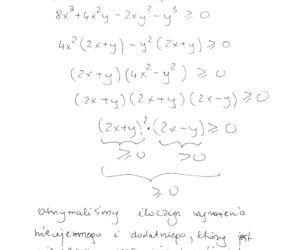 8x³+4x²y-2xy²-y³ ≥ 0
4x²(2x+y)-y²(2x+y) ≥ 0
(2x+y)(4x²-y²) ≥ 0
(2x+y)(2x+y)(2x-y) ≥ 0
(2x+y)²·(2x-y) ≥ 0
≥0 >0
≥0
Otrzymaliśmy iloczyn wyrażenia
nieujemnego i dodatniego, który jest